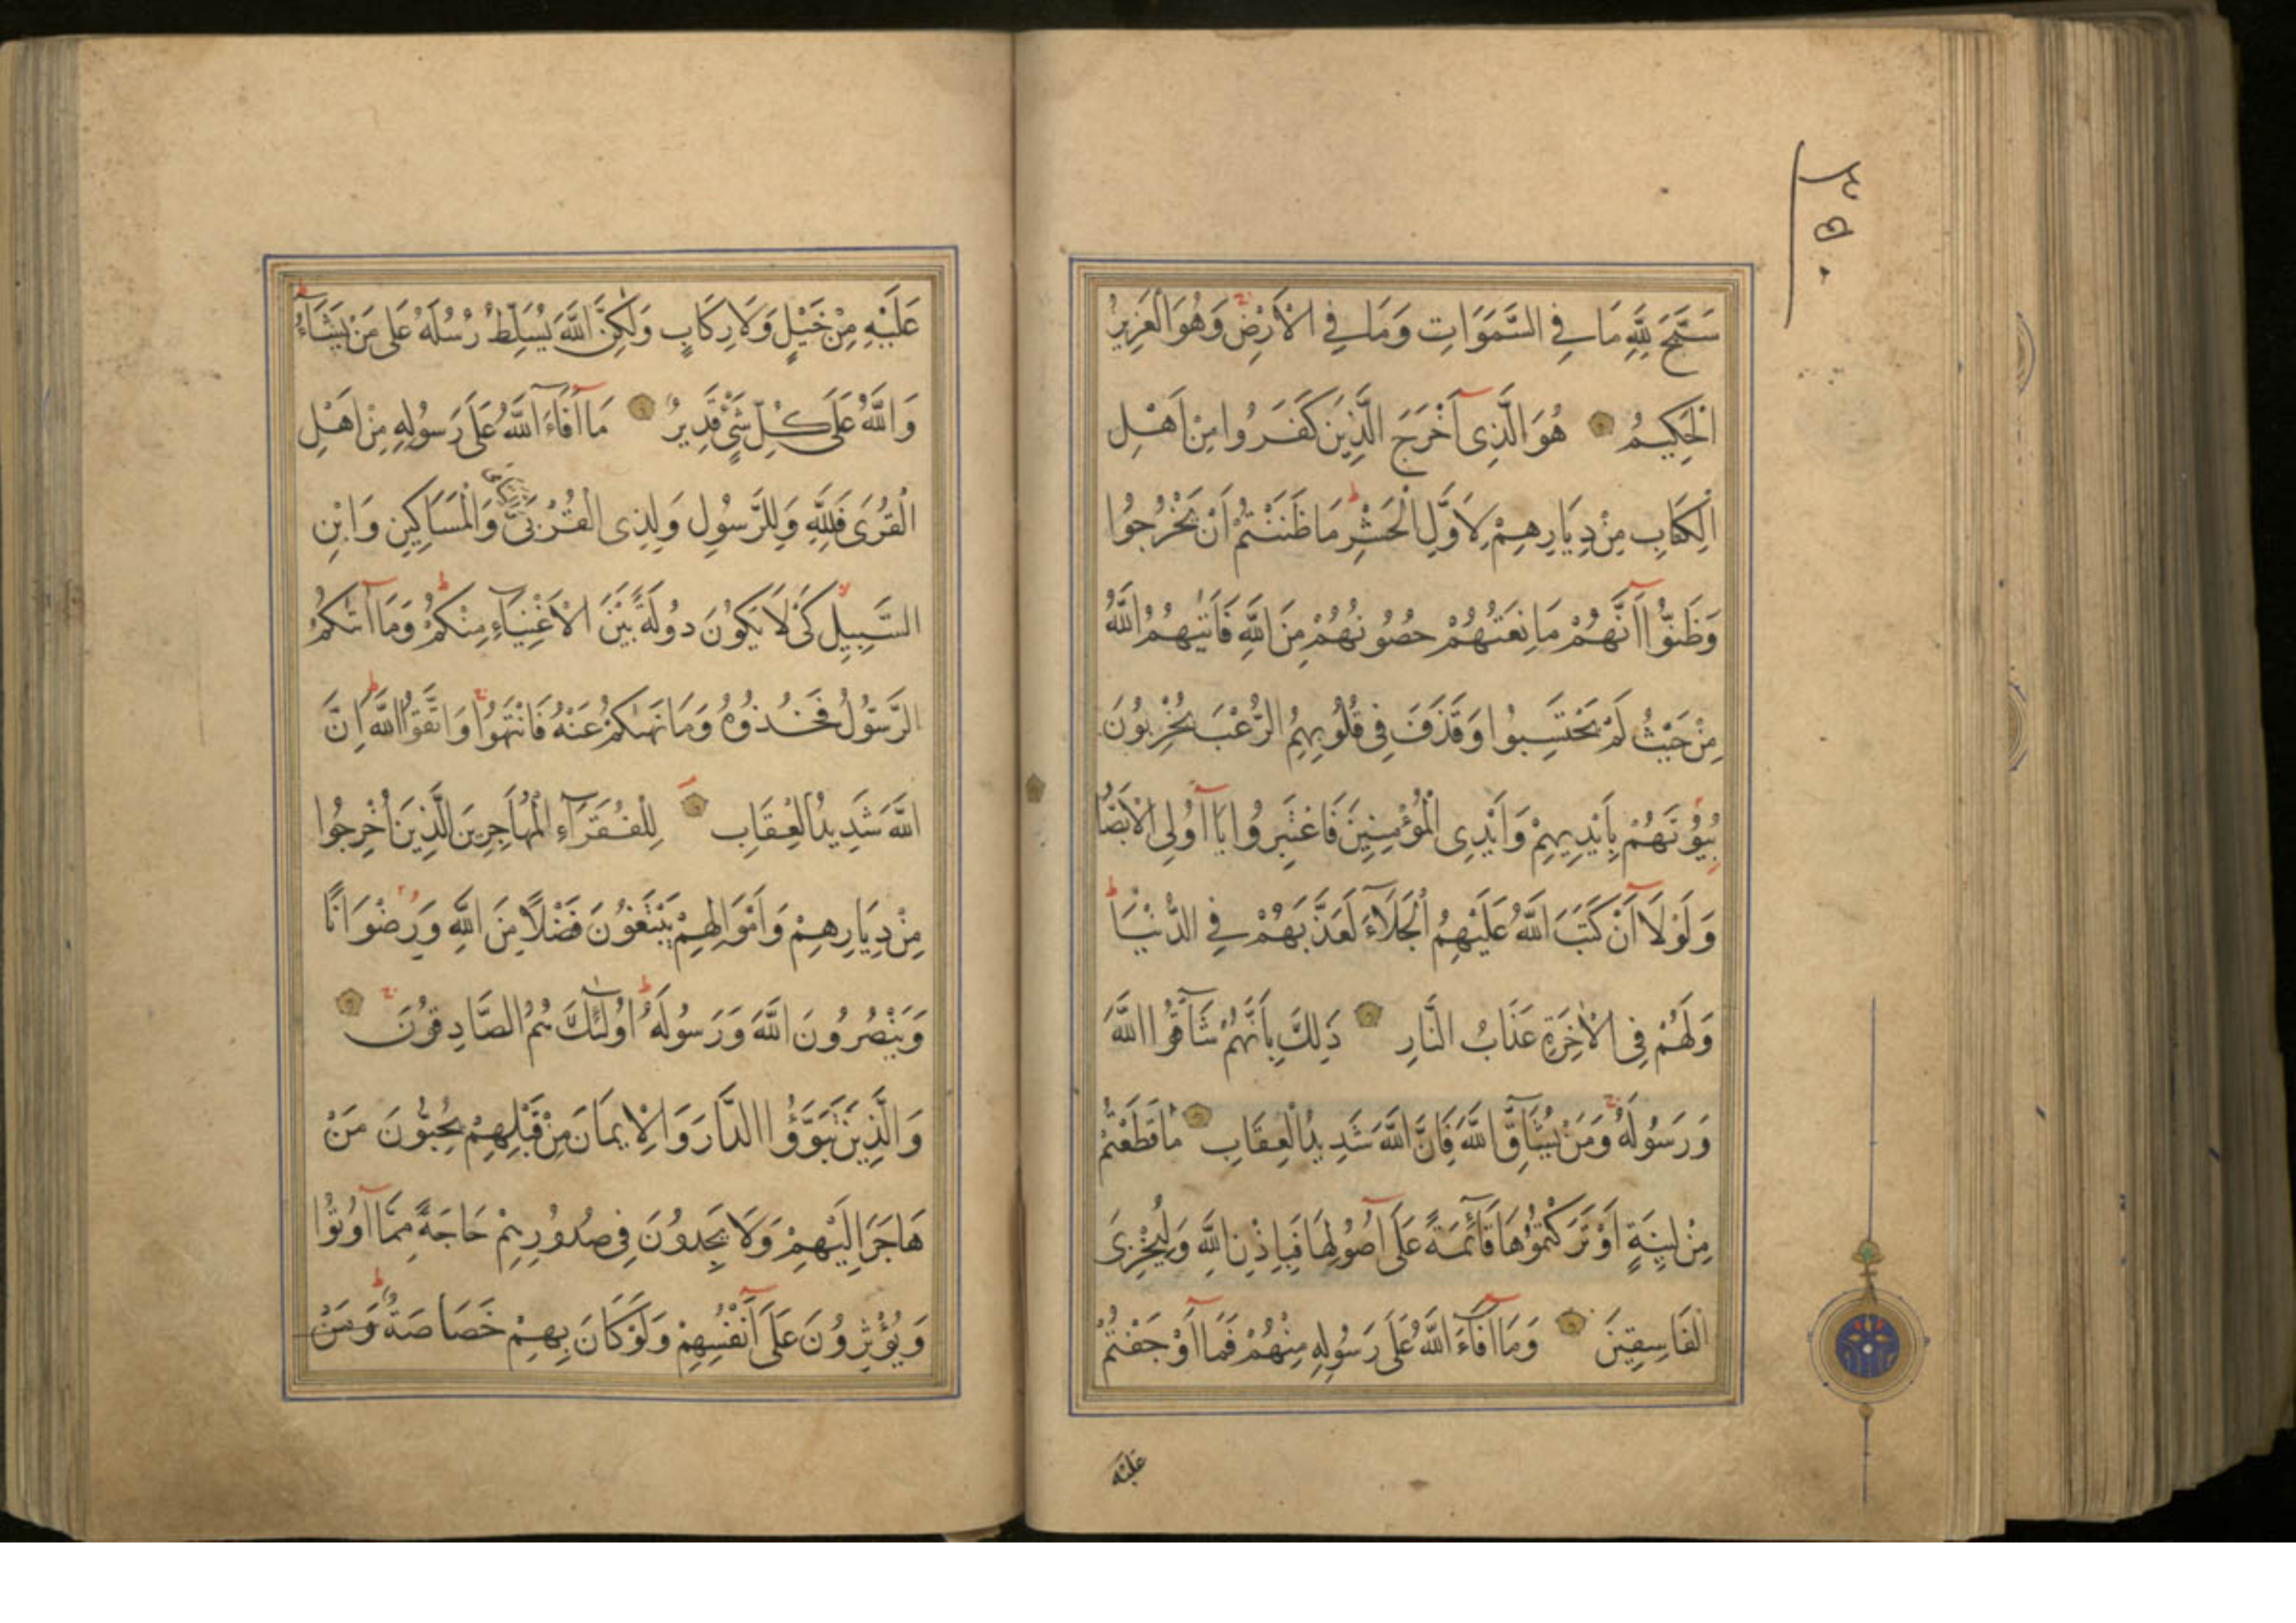 ٣٥٠
سَبَّحَ لِلَّهِ مَا فِي السَّمَوَاتِ وَمَا فِي الْأَرْضِ وَهُوَ الْعَزِيزُ
الْحَكِيمُ هُوَ الَّذِى أَخْرَجَ الَّذِينَ كَفَرُوا مِنْ أَهْلِ
الْكِتَابِ مِنْ دِيَارِهِمْ لِأَوَّلِ الْحَشْرِ مَا ظَنَنْتُمْ أَنْ يَخْرُجُوا
وَظَنُّوا أَنَّهُمْ مَانِعَتُهُمْ حُصُونُهُمْ مِنَ اللَّهِ فَأَتٰيهُمُ اللَّهُ
مِنْ حَيْثُ لَمْ يَحْتَسِبُوا وَقَذَفَ فِي قُلُوبِهِمُ الرُّعْبَ يُخْرِبُونَ
بُيُوتَهُمْ بِأَيْدِيهِمْ وَأَيْدِى الْمُؤْمِنِينَ فَاعْتَبِرُوا يَا أُولِي الْأَبْصَارِ
وَلَوْلَا أَنْ كَتَبَ اللَّهُ عَلَيْهِمُ الْجَلَاءَ لَعَذَّبَهُمْ فِي الدُّنْيَا
وَلَهُمْ فِي الْآخِرَةِ عَذَابُ النَّارِ ذَلِكَ بِأَنَّهُمْ شَاقُّوا اللَّهَ
وَرَسُولَهُ وَمَنْ يُشَاقِّ اللَّهَ فَإِنَّ اللَّهَ شَدِيدُ الْعِقَابِ مَا قَطَعْتُمْ
مِنْ لِينَةٍ أَوْ تَرَكْتُمُوهَا قَائِمَةً عَلَى أُصُولِهَا فَبِإِذْنِ اللَّهِ وَلِيُخْزِىَ
الْفَاسِقِينَ وَمَا أَفَاءَ اللَّهُ عَلَى رَسُولِهِ مِنْهُمْ فَمَا أَوْجَفْتُمْ
عَلَيْهِ
عَلَيْهِ مِنْ خَيْلٍ وَلَا رِكَابٍ وَلَكِنَّ اللَّهَ يُسَلِّطُ رُسُلَهُ عَلَى مَنْ يَشَاءُ
وَاللَّهُ عَلَى كُلِّ شَيْءٍ قَدِيرٌ مَا أَفَاءَ اللَّهُ عَلَى رَسُولِهِ مِنْ أَهْلِ
الْقُرَى فَلِلَّهِ وَلِلرَّسُولِ وَلِذِى الْقُرْبَى وَالْمَسَاكِينِ وَابْنِ
السَّبِيلِ كَىْ لَا يَكُونَ دُولَةً بَيْنَ الْأَغْنِيَاءِ مِنْكُمْ وَمَا آتٰكُمُ
الرَّسُولُ فَخُذُوهُ وَمَا نَهٰىكُمْ عَنْهُ فَانْتَهُوا وَاتَّقُوا اللَّهَ إِنَّ
اللَّهَ شَدِيدُ الْعِقَابِ لِلْفُقَرَاءِ الْمُهَاجِرِينَ الَّذِينَ أُخْرِجُوا
مِنْ دِيَارِهِمْ وَأَمْوَالِهِمْ يَبْتَغُونَ فَضْلًا مِنَ اللَّهِ وَرِضْوَانًا
وَيَنْصُرُونَ اللَّهَ وَرَسُولَهُ أُولٰئِكَ هُمُ الصَّادِقُونَ
وَالَّذِينَ تَبَوَّؤُا الدَّارَ وَالْإِيمَانَ مِنْ قَبْلِهِمْ يُحِبُّونَ مَنْ
هَاجَرَ إِلَيْهِمْ وَلَا يَجِدُونَ فِي صُدُورِهِمْ حَاجَةً مِمَّا أُوتُوا
وَيُؤْثِرُونَ عَلَى أَنْفُسِهِمْ وَلَوْ كَانَ بِهِمْ خَصَاصَةٌ وَمَنْ